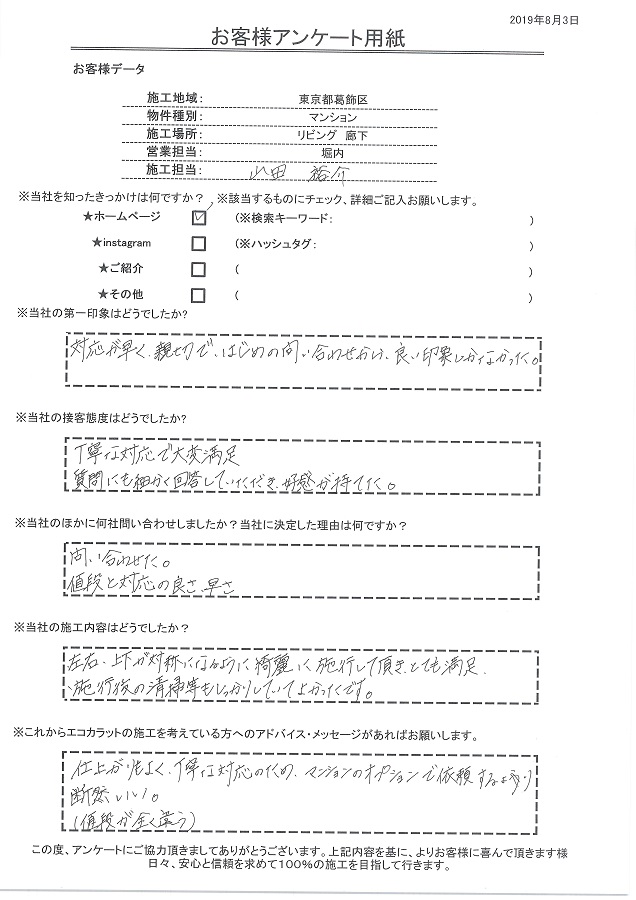 2019年8月3日
お客様アンケート用紙
お客様データ
施工地域： 東京都葛飾区
物件種別： マンション
施工場所： リビング 廊下
営業担当： 堀内
施工担当： 山田 裕介
※当社を知ったきっかけは何ですか？ ※該当するものにチェック、詳細ご記入お願いします。
★ホームページ ☑ (※検索キーワード： )
★instagram □ (※ハッシュタグ： )
★ご紹介 □ ( )
★その他 □ ( )
※当社の第一印象はどうでしたか?
対応が早く、親切で、はじめの問い合わせから、良い印象しかなかった。
※当社の接客態度はどうでしたか?
丁寧な対応で大変満足
質問にも細かく回答していただき、好感が持てた。
※当社のほかに何社問い合わせしましたか？当社に決定した理由は何ですか？
問い合わせた。
値段と対応の良さ、早さ
※当社の施工内容はどうでしたか？
左右、上下が対称になるように綺麗に施行して頂き、とても満足。
施行後の清掃等もしっかりしていてよかったです。
※これからエコカラットの施工を考えている方へのアドバイス・メッセージがあればお願いします。
仕上がりもよく、丁寧な対応のため、マンションのオプションで依頼するより
断然いい。
(値段が全く違う)
この度、アンケートにご協力頂きましてありがとうございます。上記内容を基に、よりお客様に喜んで頂きます様
日々、安心と信頼を求めて100%の施工を目指して行きます。